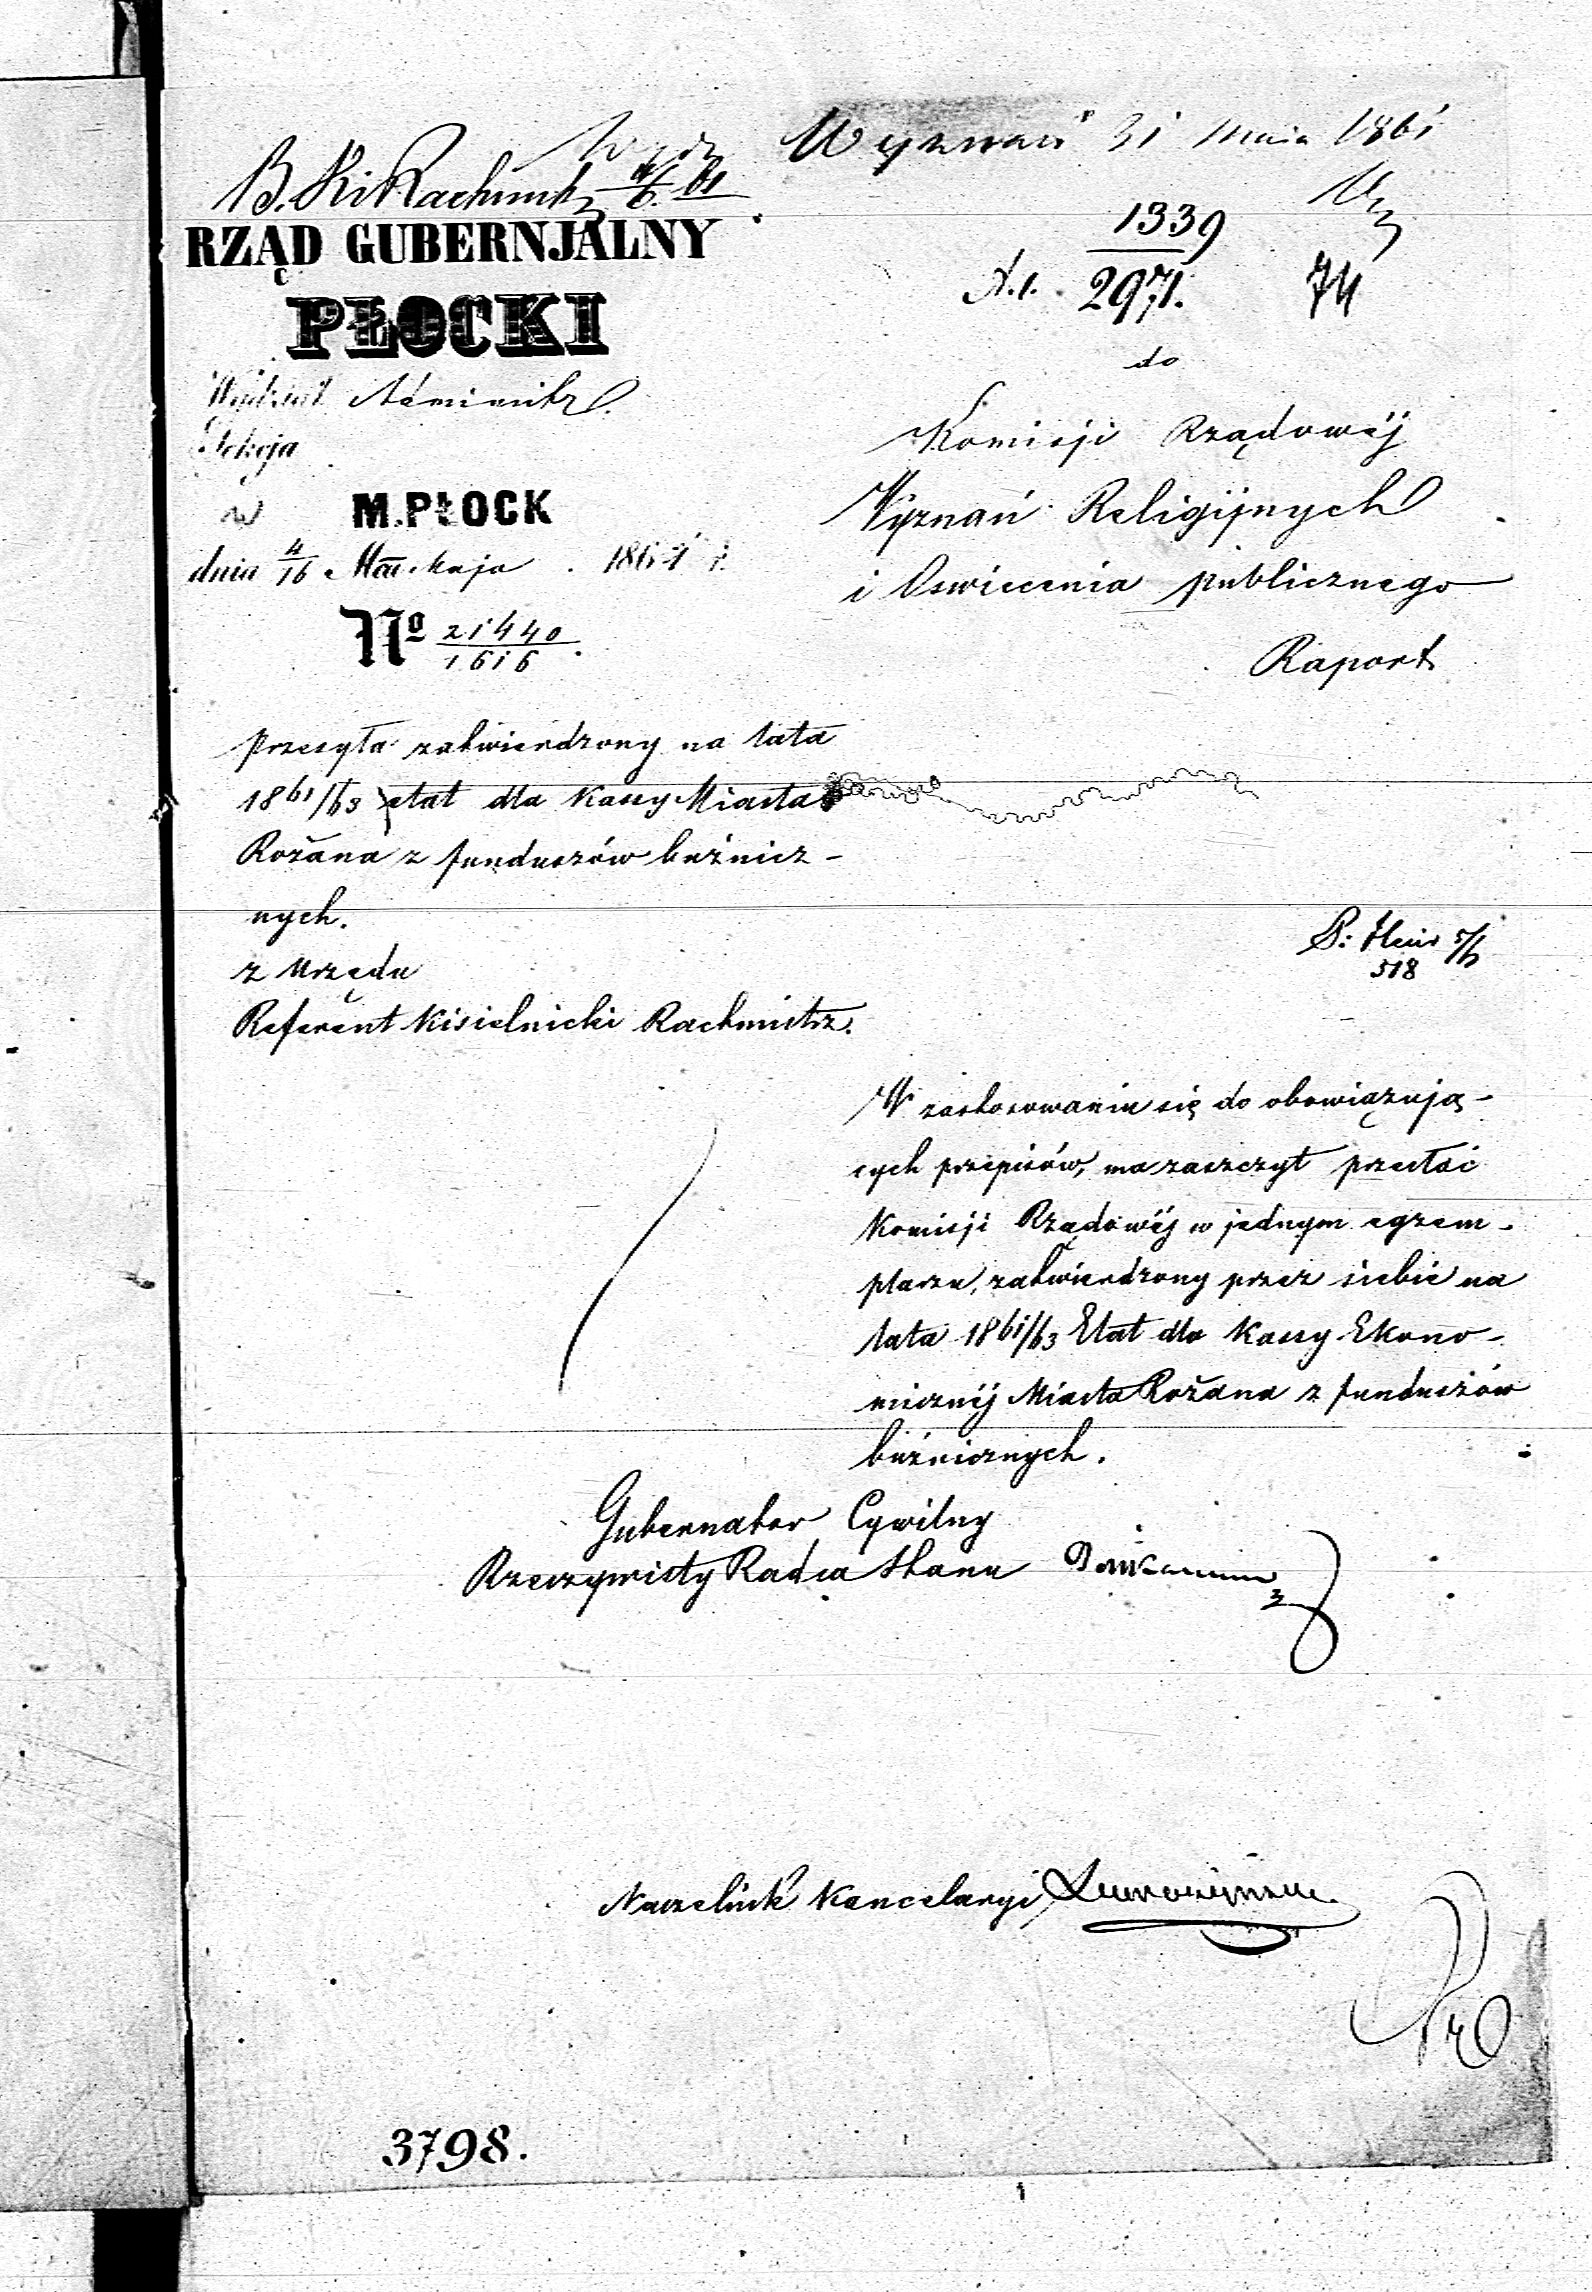 Wyznań 31 Maja 1861
B. Ki Rachunk
RZĄD GUBERNJALNY
PŁOCKI
Wydział Administr.
Sekcja
w M. PŁOCK
dnia 4/16 Maja 1861 r.
Nº 21440/1616
1339
2971.
74
do
Komisji Rządowéj
Wyznań Religijnych
i Oswiecenia publicznego
Raport
Przesyła zatwierdzony na lata
1861/63 etat dla Kassy Miasta
Rożana z funduszów bużnicz-
nych.
z Urzędu
Referent Kisielnicki Rachmistrz.
518
W zastosowaniu się do obowiązują-
cych przepisów, ma zaszczyt przesłać
Komisji Rządowéj w jednym egzem-
plarzu, zatwierdzony przez siebie na
lata 1861/63 Etat dla Kassy Ekono-
micznéj Miasta Rożana z funduszów
bużnicznych.
Gubernator Cywilny
Rzeczywisty Radca Stanu
Naczelnik Kancelaryi
3798.